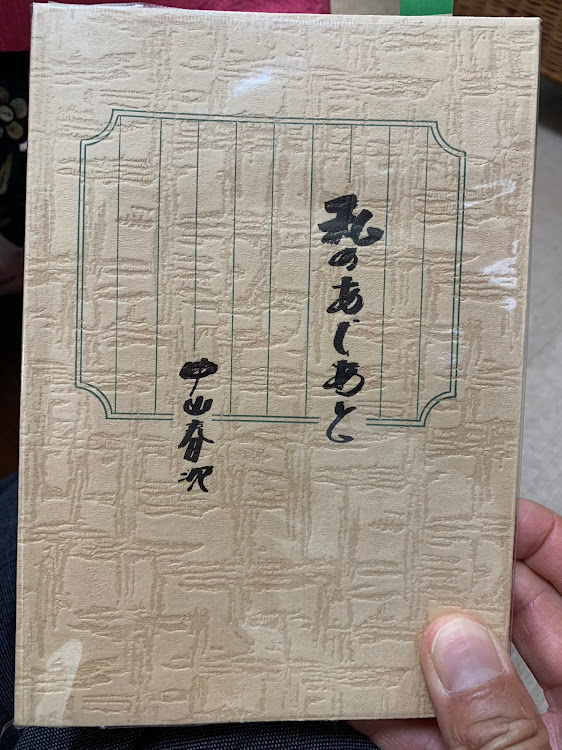 私のあしあと
中山春次